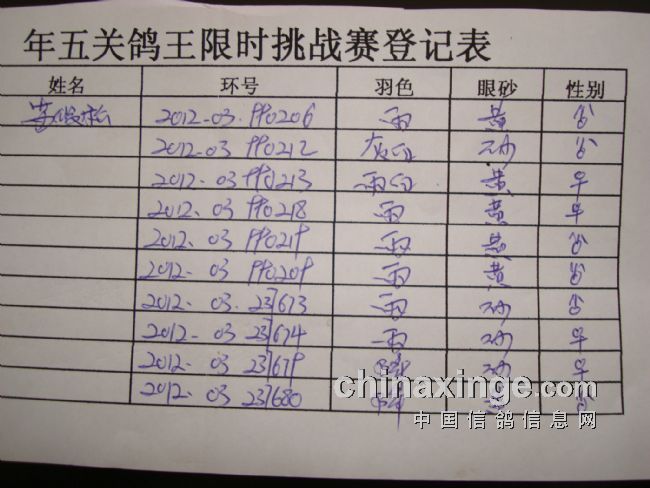 年五关鸽王限时挑战赛登记表
姓名 环号 羽色 眼砂 性别
2012-03.990206 雨 黄 公
2012-03 990212 灰白 砂 公
2012-03 990213 雨白 黄 早
2012-03 990218 雨 黄 早
2012-03 990219 雨 黄 公
2012-03 990209 雨 黄 公
2012-03.237673 雨 砂 公
2012-03 237674 雨 砂 早
2012-03 237679 砂 早
2012-03 237680 公
chinaxinge.com
中国信鸽信息网